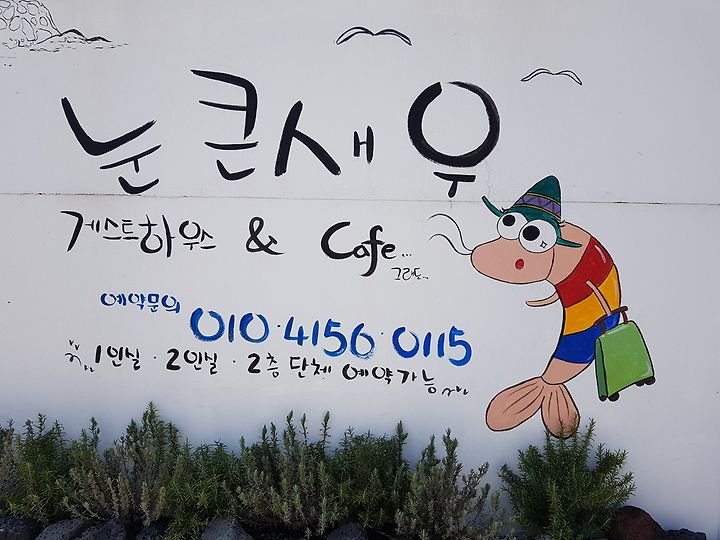 눈큰새우
게스트하우스 & Cafe...
예약문의 010·4156·0115
1인실·2인실·2층 단체 예약가능